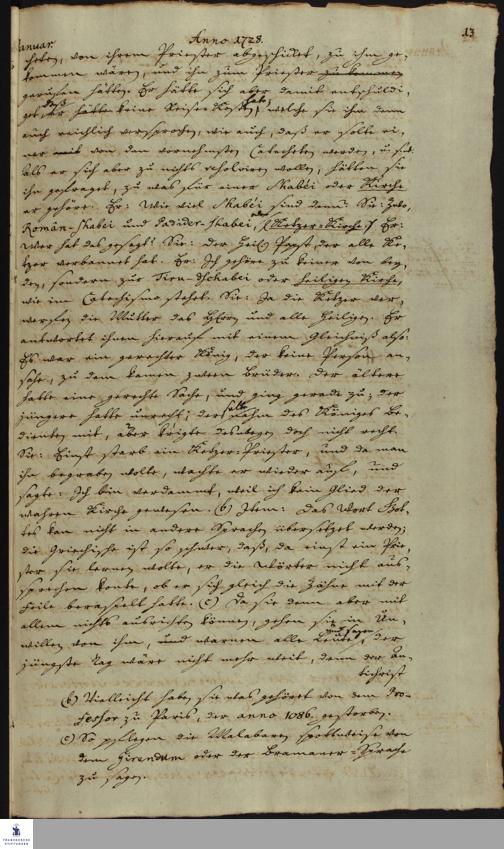 Anno 1728. 13
Januar.
cheten, von ihrem Priester abgeschicket, zu ihm ge-
kommen wären, und ihn zum Priester zu kommen
geruffen hätten. Er hätte sich aber damit entschuldi-
get, daß er keine Reise-Kosten habe, welche sie ihm denn
auch reichlich versprochen, wie auch, daß er solte ei-
ner mit von den vornehmsten Catecheten werden,
Als er sich aber zu nichts resolviren wollen, hätten sie
ihn gefraget, zu was für einer Shabei oder Kirche
er gehöre. Er: Wie viel Shabei sind denn? Sie: Zwo,
Roman-Shabei und Paduder-Shabei, oder (Ketzer-Kirche) Er:
Wer hat das gesagt? Sie: der heil. Papst, der alle Ke-
tzer verbannet hat. Er: Ich gehöre zu keiner von bey-
den, sondern zur Tiru-Schabei oder heiligen Kirche,
wie im Catechismo stehet. Sie: Ja die Ketzer ver-
werffen die Mutter des HErrn und alle Heiligen. Er
antwortet ihnen hierauf mit einem Gleichniß also:
Es war ein gerechter König, der keine Person an-
sahe, zu dem kamen zween Brüder. Der ältere
hatte eine gerechte Sache, und ging gerade zu; der
jüngere hatte unrecht; der nahm alle des Königes Be-
dienten mit, aber kriegte deswegen doch nicht recht.
Sie: Einst starb ein Ketzer-Priester, und da man
ihn begraben wolte, wachte er wieder auf, und
sagte: Ich bin verdammt, weil ich kein Glied der
wahren Kirche gewesen. (b) Item: Das Wort Got-
tes kan nicht in andere Sprachen übersetzet werden;
die Griechische ist so schwer, daß, da einst ein Prie-
ster sie lernen wolte, er die Wörter nicht aus-
sprechen konte, ob er sich gleich die Zähne mit der
Feile beraspelt hatte. (c) Da sie denn aber mit
allem nichts ausrichten können, gehen sie in Un-
willen von ihm, und warnen alle Leute, der
jüngste Tag wäre nicht mehr weit, denn der An-
tichrist
(b) Vielleicht haben sie was gehöret von dem Pro-
fessor zu Paris, der anno 1086. gestorben.
(c) So pflegen die Malabaren spottweise von
dem Girendum oder der Bramaner-Sprache
zu sagen.
FRANCKESCHE
STIFTUNGEN